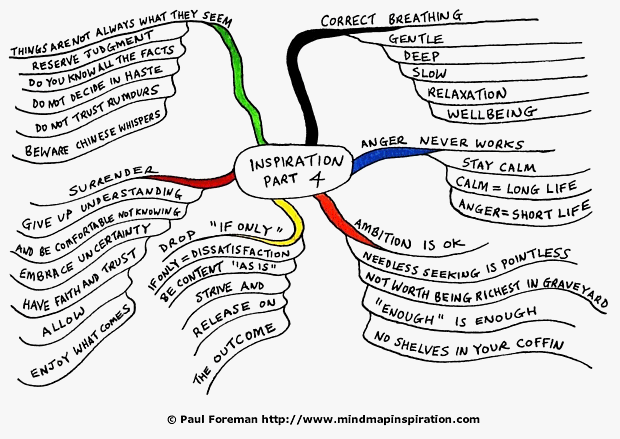 INSPIRATION
PART 4
CORRECT BREATHING
GENTLE
DEEP
SLOW
RELAXATION
WELLBEING
ANGER NEVER WORKS
STAY CALM
CALM = LONG LIFE
ANGER = SHORT LIFE
AMBITION IS OK
NEEDLESS SEEKING IS POINTLESS
NOT WORTH BEING RICHEST IN GRAVEYARD
"ENOUGH" IS ENOUGH
NO SHELVES IN YOUR COFFIN
DROP "IF ONLY"
IF ONLY = DISSATISFACTION
BE CONTENT "AS IS"
STRIVE AND
RELEASE ON
THE OUTCOME
SURRENDER
GIVE UP UNDERSTANDING
AND BE COMFORTABLE NOT KNOWING
EMBRACE UNCERTAINTY
HAVE FAITH AND TRUST
ALLOW
ENJOY WHAT COMES
THINGS ARE NOT ALWAYS WHAT THEY SEEM
RESERVE JUDGMENT
DO YOU KNOW ALL THE FACTS
DO NOT DECIDE IN HASTE
DO NOT TRUST RUMOURS
BEWARE CHINESE WHISPERS
© Paul Foreman http://www.mindmapinspiration.com